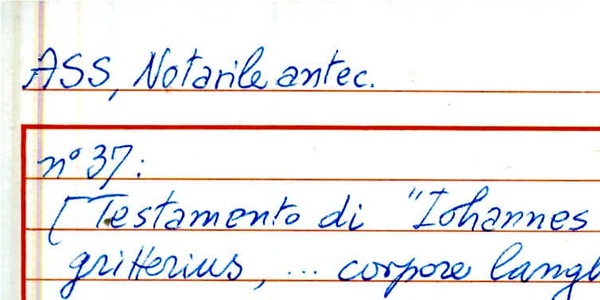 ASS, Notarile antec.
n° 37:
[Testamento di "Iohannes
gritterius, ... corpore